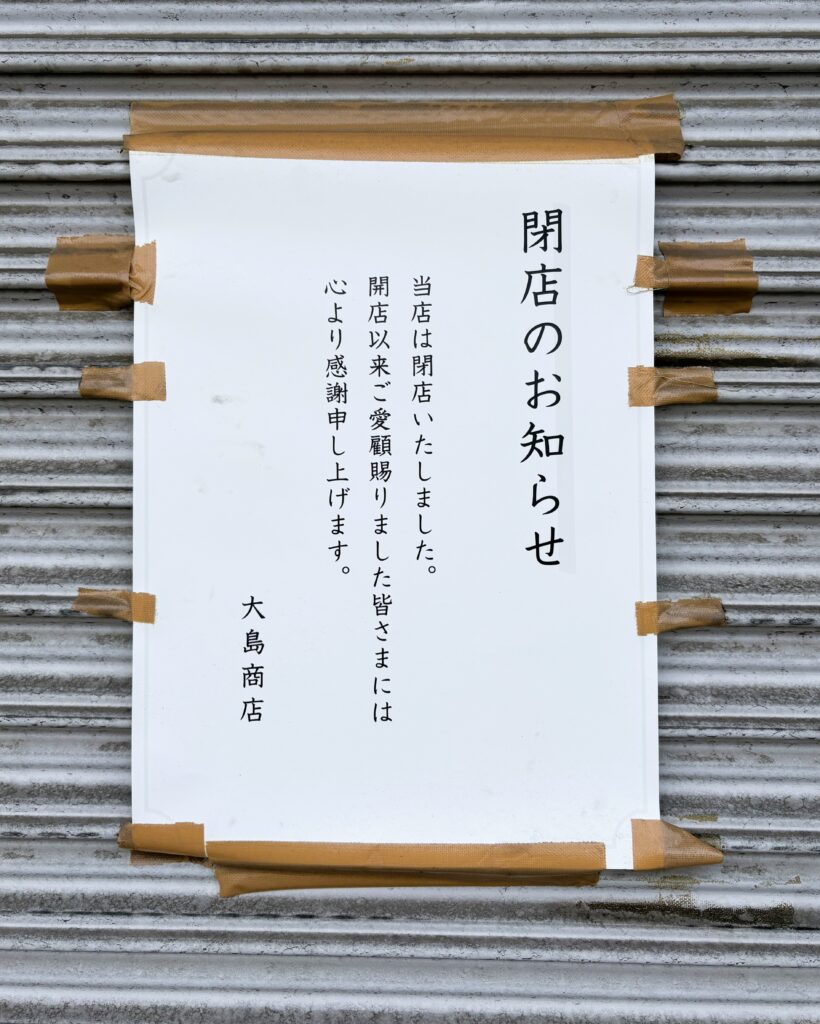 閉店のお知らせ
当店は閉店いたしました。
開店以来ご愛顧賜りました皆さまには
心より感謝申し上げます。
大島商店